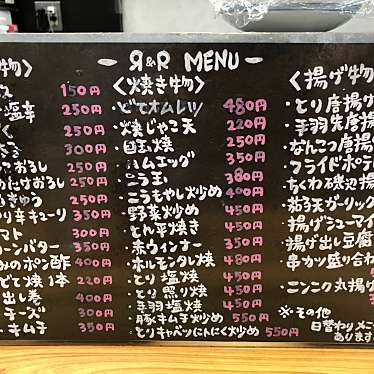 -R&R MENU-
物〉
150円
塩辛 250円
250円
300円
おろし 250円
たけおろし 250円
きゅう 250円
り辛キューリ 350円
マト 300円
ーンバター 350円
みのポン酢 400円
どて焼1本 220円
出し巻 400円
チーズ 300円
キムチ 350円
〈焼き物〉
・どてオムレツ 480円
・焼じゃこ天 220円
・目玉焼 250円
・ハムエッグ 350円
・ニラ玉 380円
・こうもやし炒め 400円
・野菜炒め 450円
・とん平焼き 450円
・赤ウィンナー 450円
・ホルモンタレ焼 480円
・とり塩焼 450円
・とり照り焼 450円
・手羽塩焼 450円
・豚キムチ炒め 550円
・とりキャベツにんにく炒め 550円
〈揚げ物
・とり唐揚げ
・手羽先唐揚
・なんこつ唐揚
・フライドポテ
・ちくわ磯辺揚
・揚げシューマイ
・揚げ出し豆腐
・串カツ盛り合わ
・ニンニク丸揚げ
※その他
日替わりメニ
あります